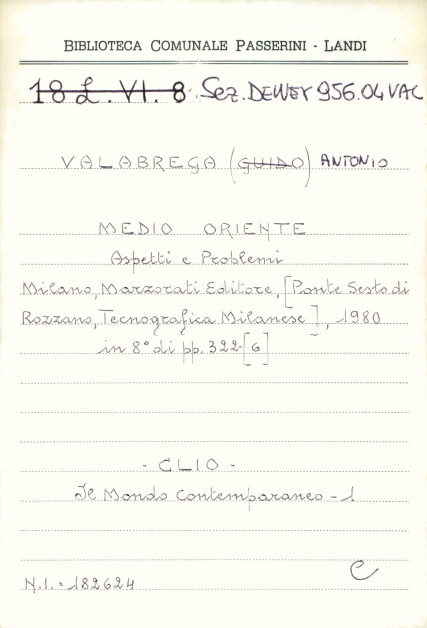 BIBLIOTECA COMUNALE PASSERINI - LANDI
18 L. VI. 8. Sez. DEWEY 956.04 VAC
VALABREGA (GUIDO) ANTONIO
MEDIO ORIENTE
Aspetti e Problemi
Milano, Marzorati Editore, [Ponte Sesto di
Rozzano, Tecnografica Milanese], 1980
in 8° di pp. 322-[6]
- CLIO -
Il Mondo Contemporaneo - 1
C
N.I. = 182624